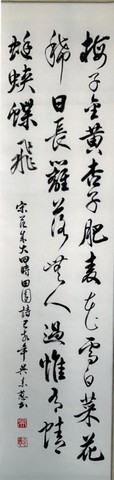 梅子金黄杏子肥麦花雪白菜花
稀日長籬落無人過惟有蜻
蜓蛺蝶飛
宋范成大四時田園詩己亥年吴